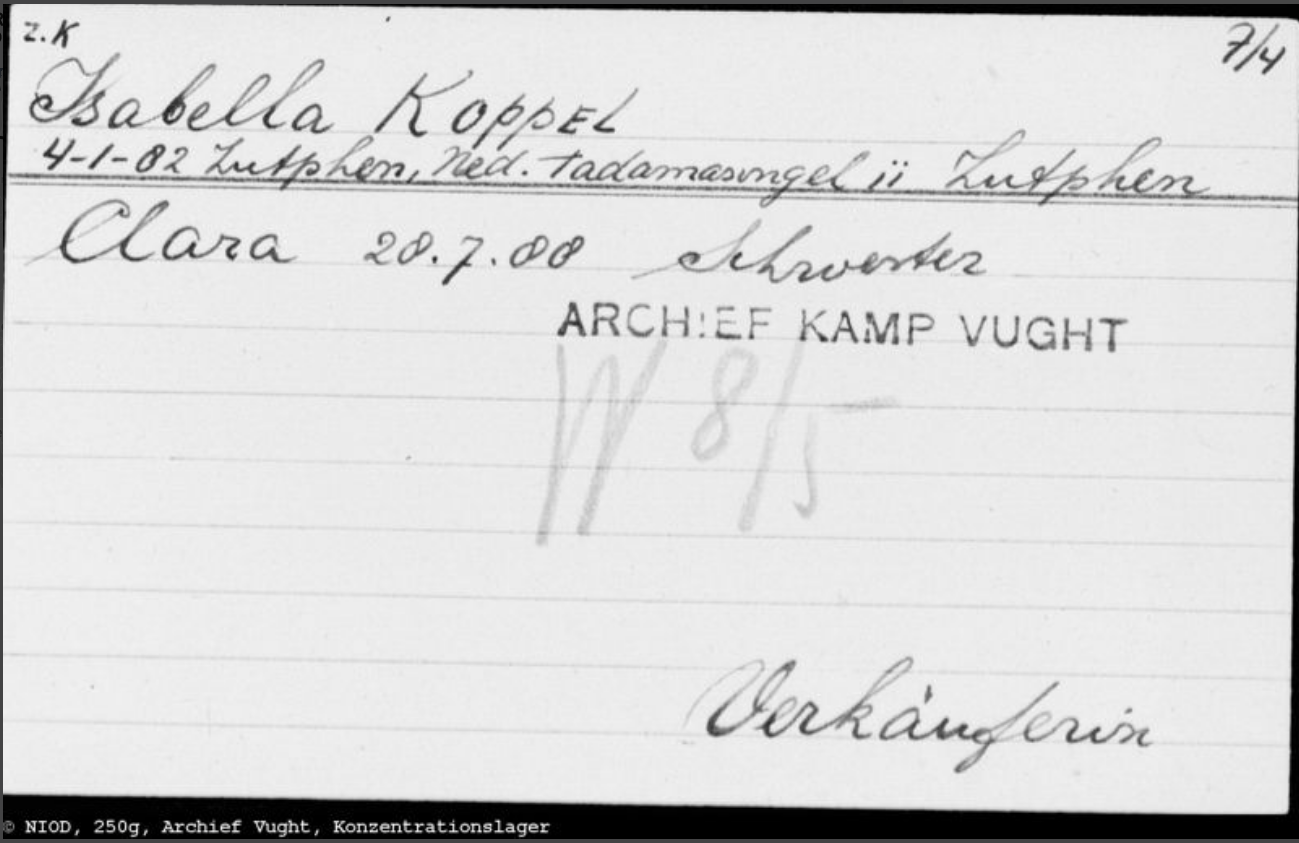 Z.K
7/4
Isabella Koppel
4-1-82 Zutphen, Ned. Tadamasingel 11 Zutphen
Clara 28.7.88 Schwester
ARCHIEF KAMP VUGHT
W 8/5
Verkäuferin
© NIOD, 250g, Archief Vught, Konzentrationslager